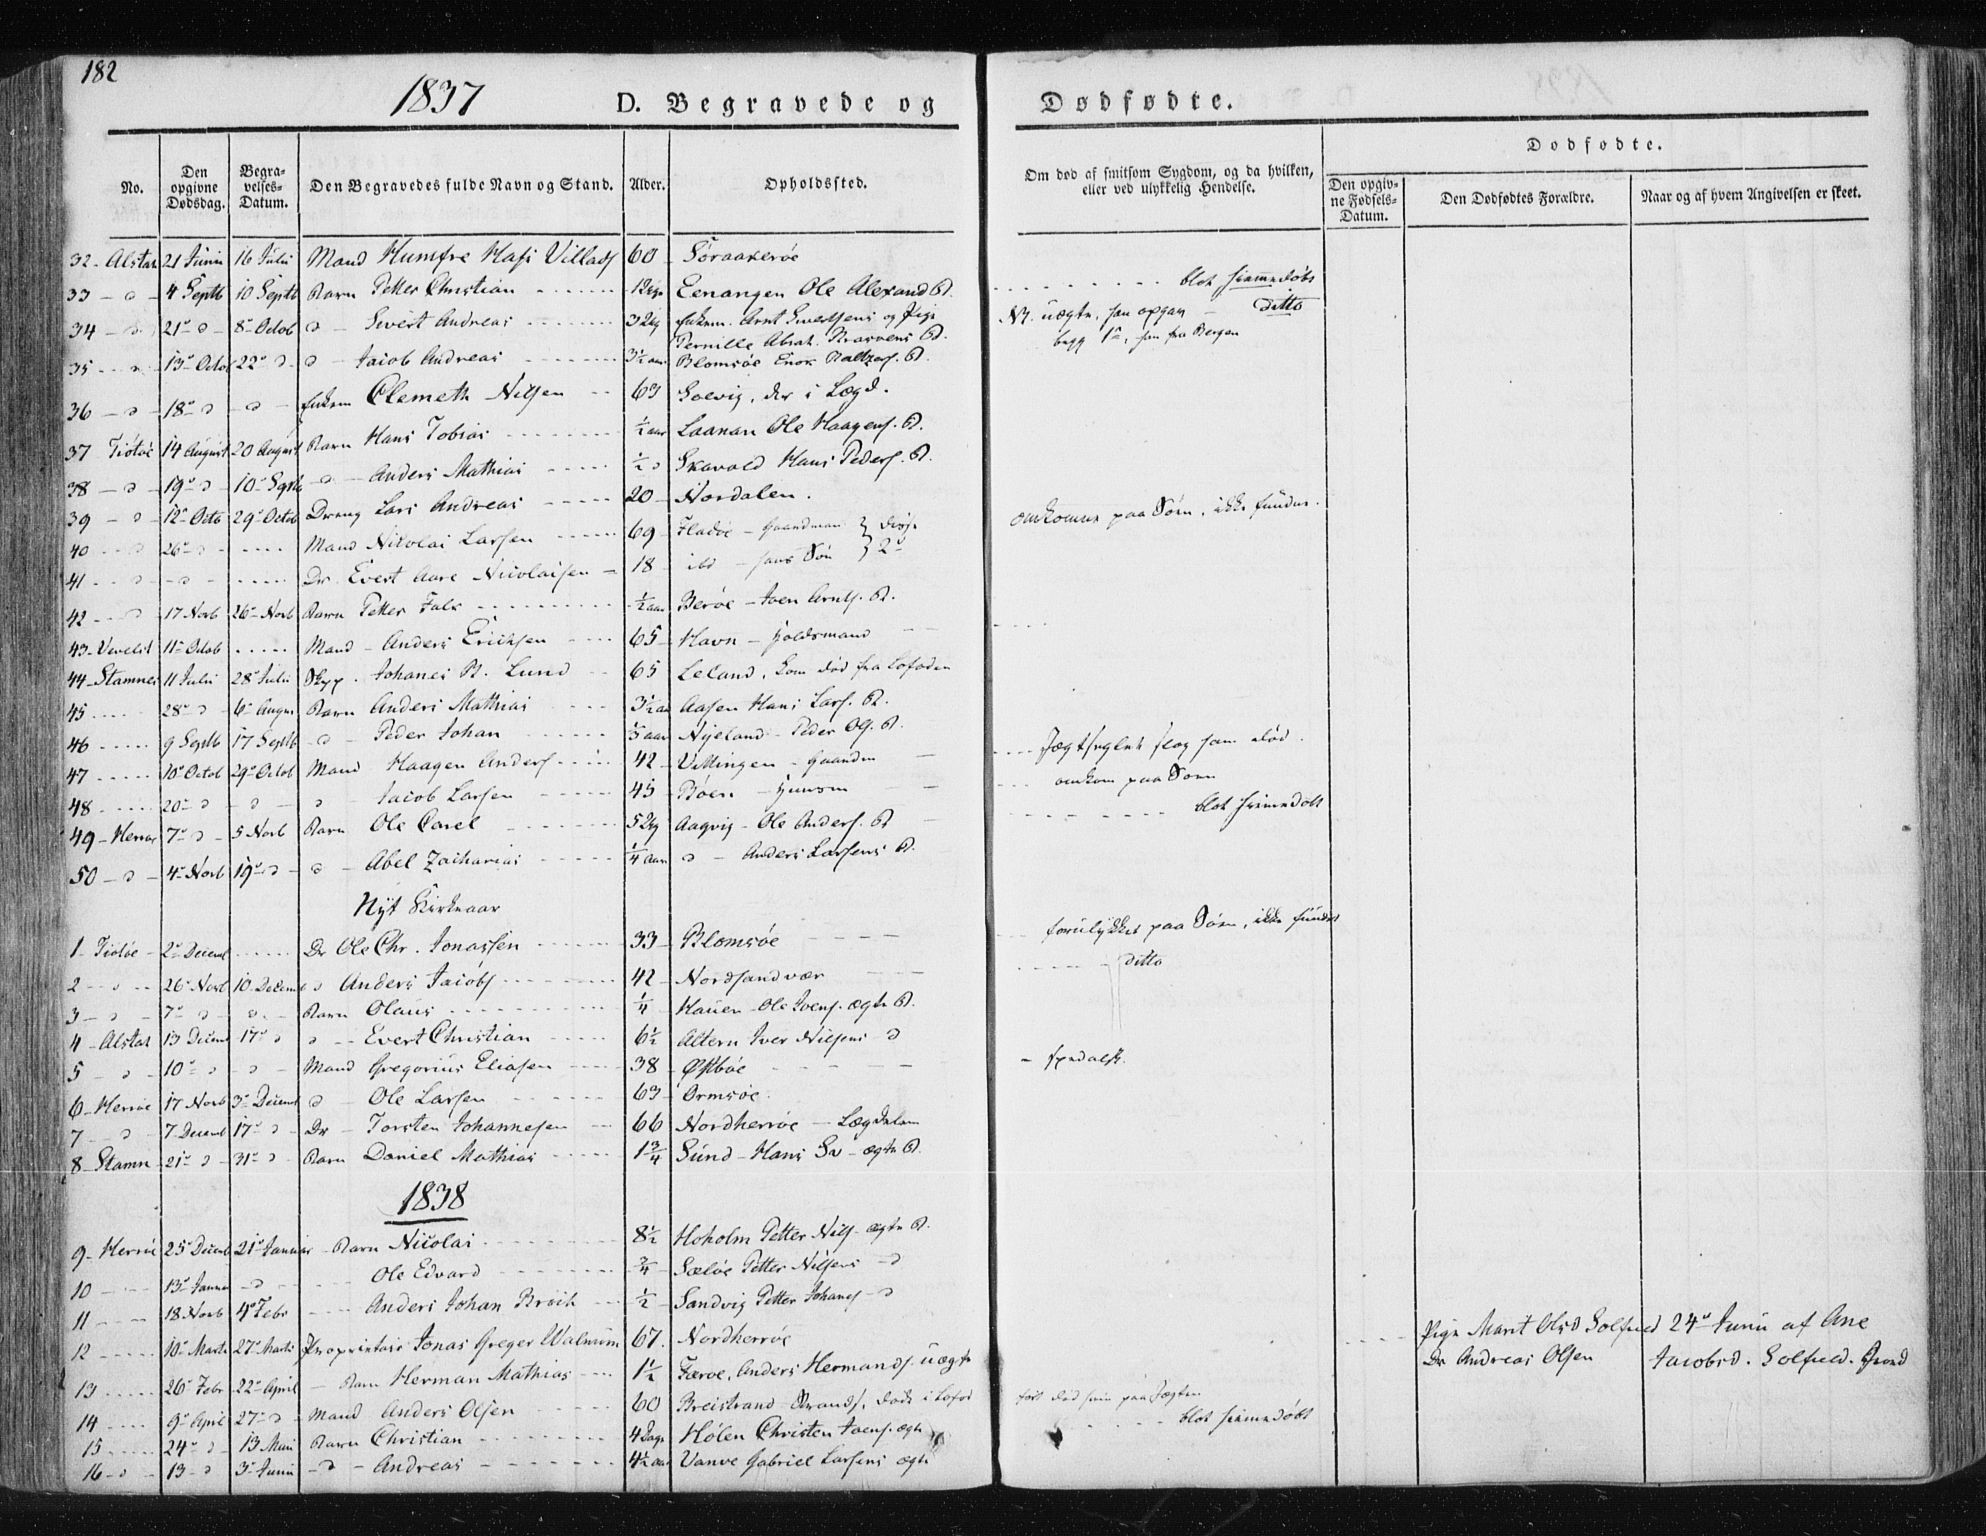 182
1837
D. Begravede og Dødfødte.
Dødfødte.
No.
Den opgivne Dødsdag.
Begravelses-Datum.
Den Begravedes fulde Navn og Stand.
Alder.
Opholdssted.
Om død af smitsom Sygdom, og da hvilken, eller ved ulykkelig Hendelse.
Den opgivne Fødsels-Datum.
Den Dødfødtes Forældre.
Naar og af hvem Angivelsen er skeet.
32 - Alstah 21 Junii 16 Julii Mand Humfre Villads 60 Søraakerøe
33 - " - 4 Septb 10 Septb Barn Petter Christian Eenangen Ole Alexand B. blot hiemmedøbt
34 - " 21 " " 8 Octob " - Sivert Andreas Enkem. Arnt Sivertsens og Pige ditto
Pernille Abrah. B. fra Bergen
35 - " 13 Octob 22 " " " - Jacob Andreas 3½ aar Blomsøe Enok Baltzers. B.
36 - " - 18 " " - " - Enkem Clemeth Nilsen 63 Soevig, der i Lægd.
37 Tiøtøe 14 August 20 August Barn Hans Tobias ½ aar Laanan Ole Haagens. B.
38 - " - 19 " " 10 Septb " - Anders Mathias ½ " Skavold Hans Peders. B.
39 - " 12 Octo 29 Octob Dreng Lars Andreas 20 Nordalen. omkomne paa Søen, ikke funden.
40 - " 26 " " Mand Nicolai Larsen 69 Fladøe - Gaardman
41 - " - " - Dr. Evert Aare Nicolaisen 18 ibd - hans Søn
42 - " 17 Novb 26 Novb Barn Petter Falk ½ aar Berøe - Iven Arnts. B.
43 - Vevelst 11 Octob Mand - Anders Erichsen 65 Havn - Holdsmand
44 - Stamnes 11 Julii 28 Julii Skpp. Johannes B. Lund 65 Leland, kom død fra Lofoden
45 28 " 6 Augu Barn Anders Mathias 3½ aar Aasen Hans Lars. B.
46 9 Septb 17 Septb " - Peder Johan Nyeland - Peder Ol. B.
47 10 Octob 29 Octob Mand Haagen Anders 42 Villingen - Gaardm Jægtseglet slog ham død.
48 20 " - " - " Jacob Larsen 45 Bøen - Huusm omkom paa Søen
49 - Herrøe 7 " 5 Novb Barn Ole Carel Aagvig - Ole Anders. B. blot hiemmedøbt
50 - " - 4 Novb 19 " - " - Abel Zacharias ¼ aar " - Anders Larsens B.
Nyt Kirkeaar
1 - Tiøtøe - 2 Decemb Dr Ole Chr. Jonassen 33 Blomsøe forulykket paa Søen, ikke funden
2 - " 26 Novb 10 Decemb " Anders Jacobs 42 Nordsandvær ditto
3 - " - 7 " " " - Barn Olaus ¼ Hauen - Ole Ivens. ægte B.
4 - Alstah 13 Decemb 17 " " - Evert Christian 6½ Altern Iver Nilsens "
5 - " - 10 " " - " - Mand Gregorius Eliasen 38 Østbøe - spedalsk.
6 - Herrøe 17 Novb 3 Decemb " - Ole Larsen 63 Ormsøe.
7 - " - 7 Decemb 17 " " Dr - Torsten Johannesen 66 Nordherrøe - Lægdslem
8 - Stamn 21 " " 31 " " Barn Daniel Mathias 1¾ Sund - Hans Sv - ægte B.
1838
9 - Herrøe 25 Decemb 21 Januar - Barn Nicolai 8½ Hoholm Petter Nils - ægte B.
10 13 Januar - " Ole Edvard ¾ Sæløe Petter Nilsens - "
11 18 Novb 4 Febr Anders Johan Broch ½ Sandvig Petter Johans - "
12 10 Marts 27 Marts Proprietair Jonas Greger Walnum 67. Nordherrøe Pige Marit Olsd Solfield 24 Junii af Ane
13 26 Febr 22 April - Barn Herman Mathias 1½ Færøe, Anders Hermands. uægte Dr Andreas Olsen Jacobsd. Solfield.
14 9 April 27 " - Mand Anders Olsen 60 Breistrand døde i Lofod død paa Jægten
15 24 " - 13 Maii Barn Christian 4 Dage Hølen Christen Ivens. ægte blot hiemmedøbt
16 - " 13 - " 3 Junii - " - Andreas 4½ aar Vanve Gabriel Larsens ægte